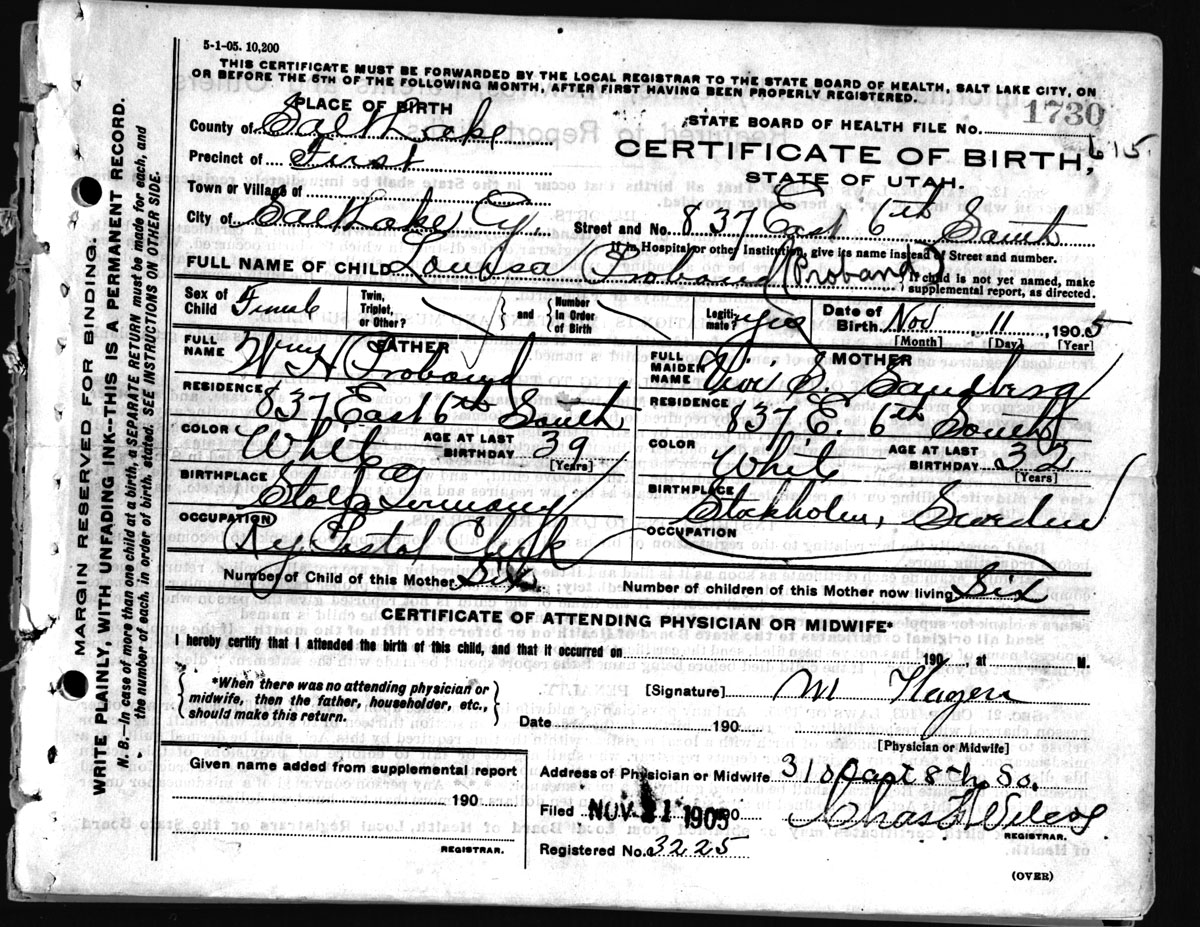 5-1-05. 10,200
THIS CERTIFICATE MUST BE FORWARDED BY THE LOCAL REGISTRAR TO THE STATE BOARD OF HEALTH, SALT LAKE CITY, ON
OR BEFORE THE 5TH OF THE FOLLOWING MONTH, AFTER FIRST HAVING BEEN PROPERLY REGISTERED.
PLACE OF BIRTH
STATE BOARD OF HEALTH FILE NO. 1730
County of Salt Lake
615
CERTIFICATE OF BIRTH,
Precinct of First
STATE OF UTAH.
Town or Village of
City of Salt Lake Cy. Street and No. 837 East 6th South
If in Hospital or other Institution, give its name instead of Street and number.
FULL NAME OF CHILD Louisa Proband (Proband) If child is not yet named, make
supplemental report, as directed.
Sex of Child Female Twin, Triplet, or Other? and Number In Order of Birth Legiti-mate? yes Date of Birth Nov 11, 1905
[Month] [Day] [Year]
FATHER
FULL NAME Wm H Proband
RESIDENCE 837 East 6th South
COLOR White AGE AT LAST BIRTHDAY 39
[Years]
BIRTHPLACE Stolp Germany
OCCUPATION Ry Postal Clerk
MOTHER
FULL MAIDEN NAME S. Sandberg
RESIDENCE 837 E. 6th South
COLOR White AGE AT LAST BIRTHDAY 32
[Years]
BIRTHPLACE Stokholm, Sweden
OCCUPATION
Number of Child of this Mother Six Number of children of this Mother now living Six
CERTIFICATE OF ATTENDING PHYSICIAN OR MIDWIFE*
I hereby certify that I attended the birth of this child, and that it occurred on 190 , at M.
*When there was no attending physician or
midwife, then the father, householder, etc.,
should make this return.
[Signature] M Hagen
Date 190
[Physician or Midwife]
Given name added from supplemental report
190
REGISTRAR.
Address of Physician or Midwife 310 East 8th So.
Filed NOV 21 1905 190 Chas Wilcox
REGISTRAR.
Registered No. 3225
(OVER)
MARGIN RESERVED FOR BINDING.
WRITE PLAINLY, WITH UNFADING INK--THIS IS A PERMANENT RECORD.
N. B.—In case of more than one child at a birth, a SEPARATE RETURN must be made for each, and
the number of each, in order of birth, stated. SEE INSTRUCTIONS ON OTHER SIDE.